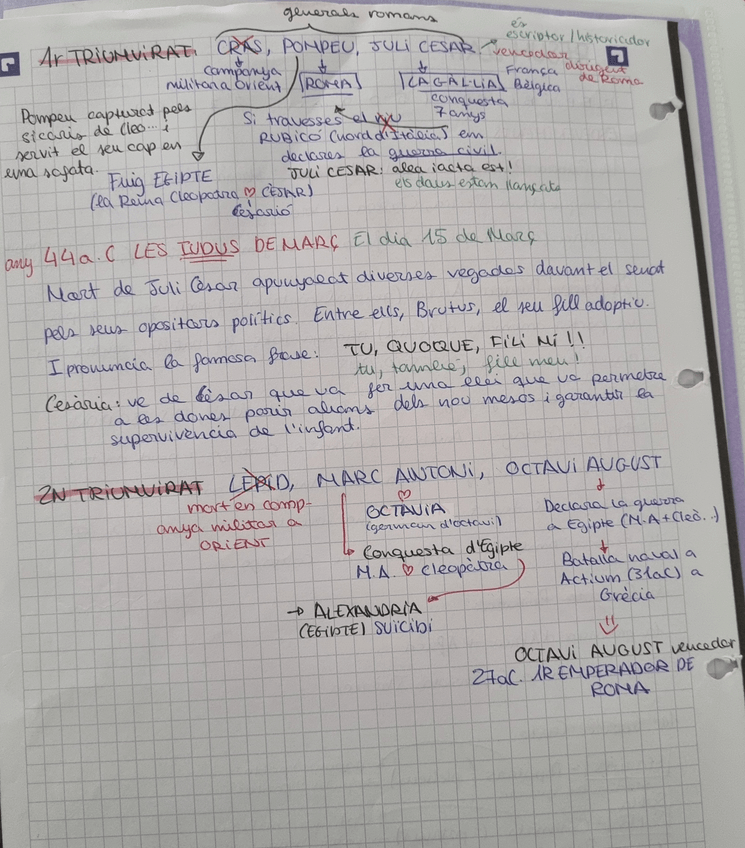 generals romans
és
escriptor/historiador
1r TRIUMVIRAT. CRAS, POMPEU, JULI CESAR. vencedor
campanya
militar a orient
ROMA
LA GAL·LIA
França
Bèlgica
dirigent
de Roma
conquesta
7 anys
Pompeu capturat pels
sicaris de Cleo... i
servit el seu cap en
una safata.
Si travesses el riu
RUBICÓ (Nord d'Itàlia) em
declares la guerra civil.
JULI CESAR: alea iacta est!
els daus estan llançats
Fuig EGIPTE
(la Reina Cleopatra ♡ CÈSAR)
Cesarió
any 44 a.C LES IDUS DE MARÇ El dia 15 de Març
Mort de Juli Cèsar apunyalat diverses vegades davant el senat
pels seus opositors polítics. Entre ells, Brutus, el seu fill adoptiu.
I pronuncia la famosa frase: TU, QUOQUE, FILI MI!!
tu, també, fill meu!
Cesària: ve de Cèsar que va fer una llei que va permetre
a les dones parir abans dels nou mesos i garantir la
supervivencia de l'infant.
2N TRIUMVIRAT LEPID, MARC ANTONI, OCTAVI AUGUST
mort en comp-
anya militar a
ORIENT
♡
OCTAVIA
(germana d'octavi)
Conquesta d'Egipte
M.A. ♡ Cleopàtra
→ ALEXANDRIA
(EGIPTE) SUICIDI
Declara la guerra
a Egipte (M.A+Cleò..)
Batalla naval a
Actium (31aC) a
Grècia
OCTAVI AUGUST vencedor
27aC. 1R EMPERADOR DE
ROMA